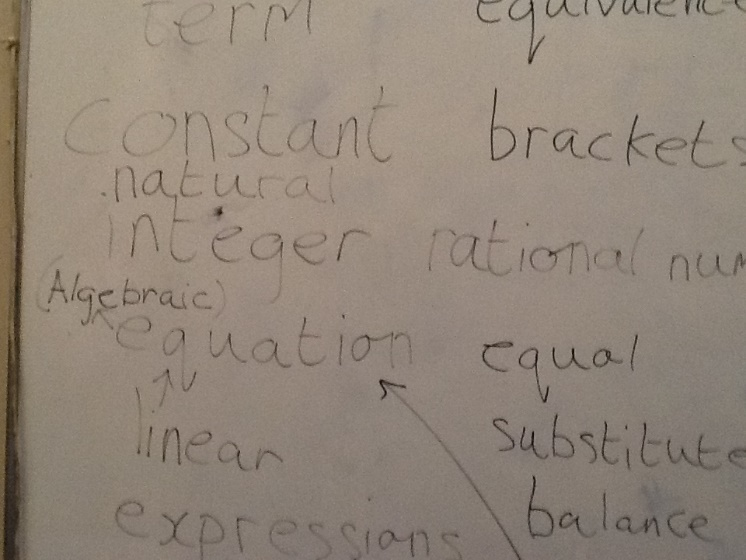 term equivalenc
constant brackets
natural
integer rational num
(Algebraic)
equation equal
linear substitute
expressions balance